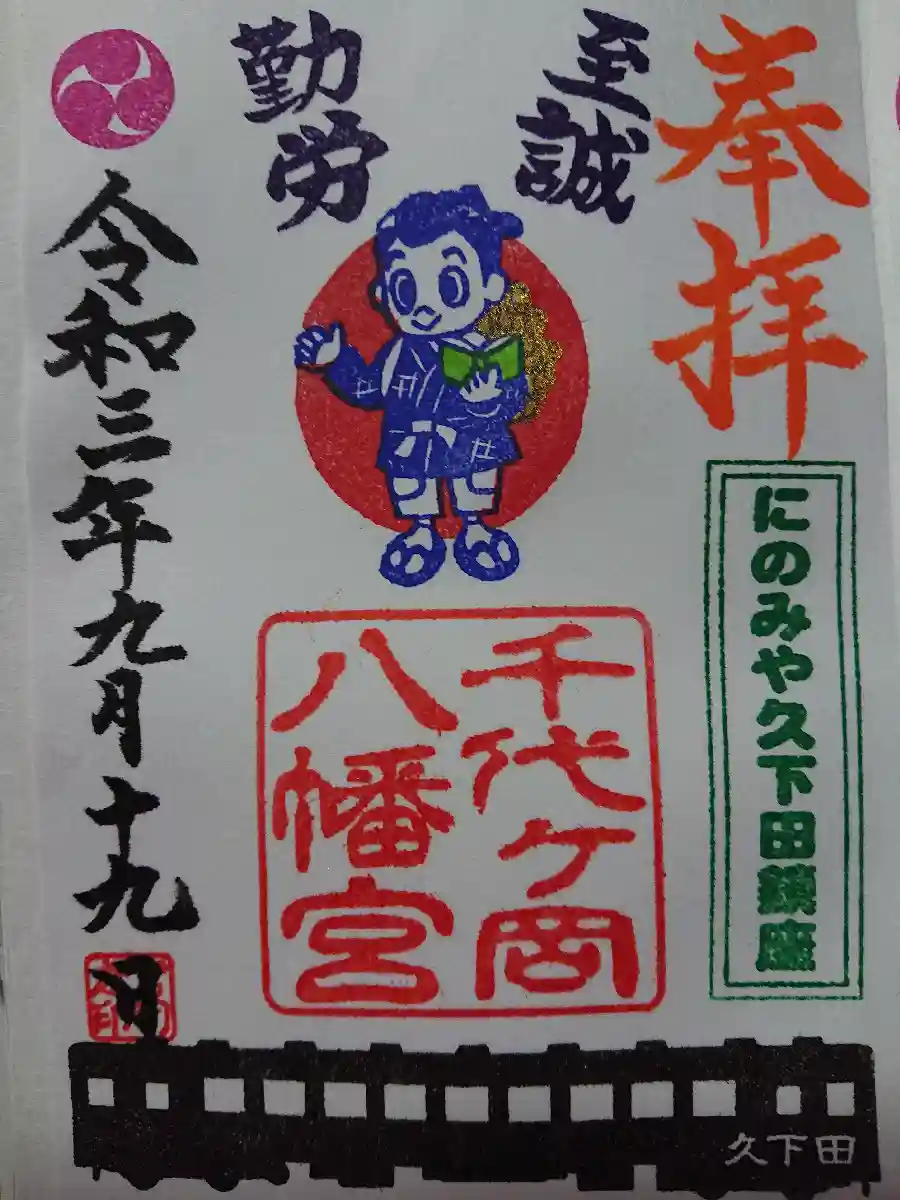 奉拝
至誠
勤労
にのみや久下田鎮座
千代ケ岡
八幡宮
令和三年九月十九日
久下田